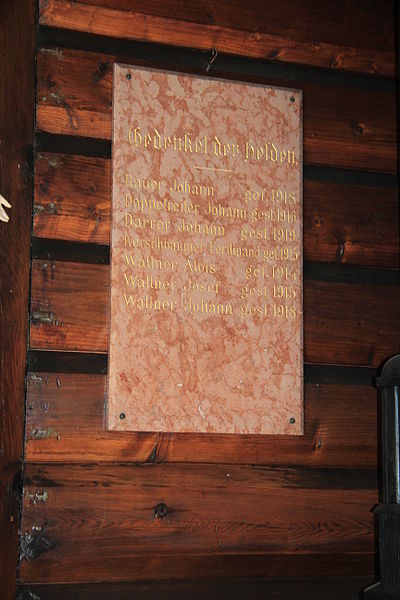 Gedenket der Helden.
Bauer Johann gef. 1918
Doppelreiter Johann gest. 1916
Darrer Johann gest. 1919
Kerschbaumer Ferdinand gef. 1915
Wallner Alois gef. 1914
Wallner Josef gest. 1915
Wallner Johann gest. 1918